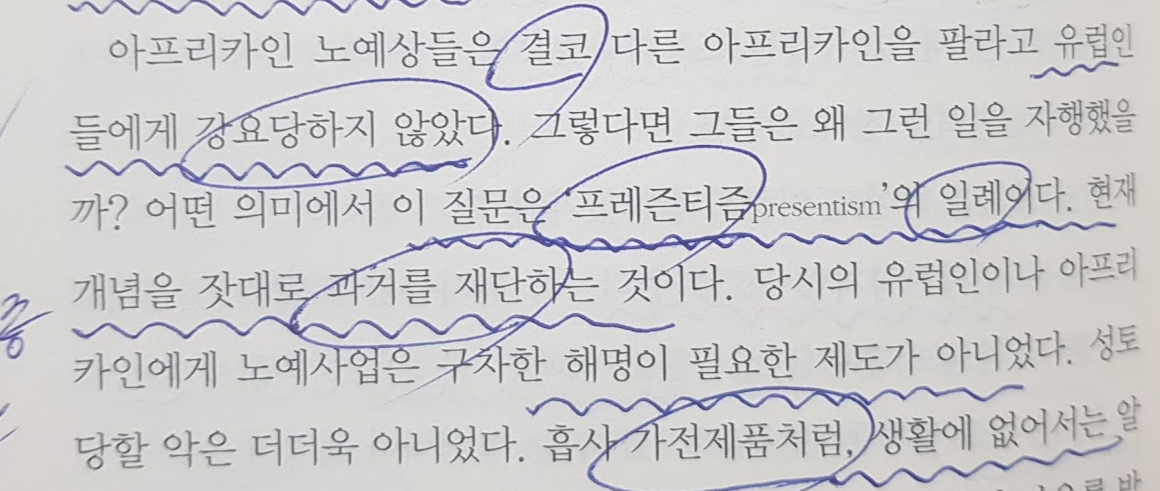 아프리카인 노예상들은 결코 다른 아프리카인을 팔라고 유럽인
들에게 강요당하지 않았다. 그렇다면 그들은 왜 그런 일을 자행했을
까? 어떤 의미에서 이 질문은 ‘프레즌티즘presentism’의 일례이다. 현재
개념을 잣대로 과거를 재단하는 것이다. 당시의 유럽인이나 아프리
카인에게 노예사업은 구차한 해명이 필요한 제도가 아니었다. 성토
당할 악은 더더욱 아니었다. 흡사 가전제품처럼, 생활에 없어서는 알